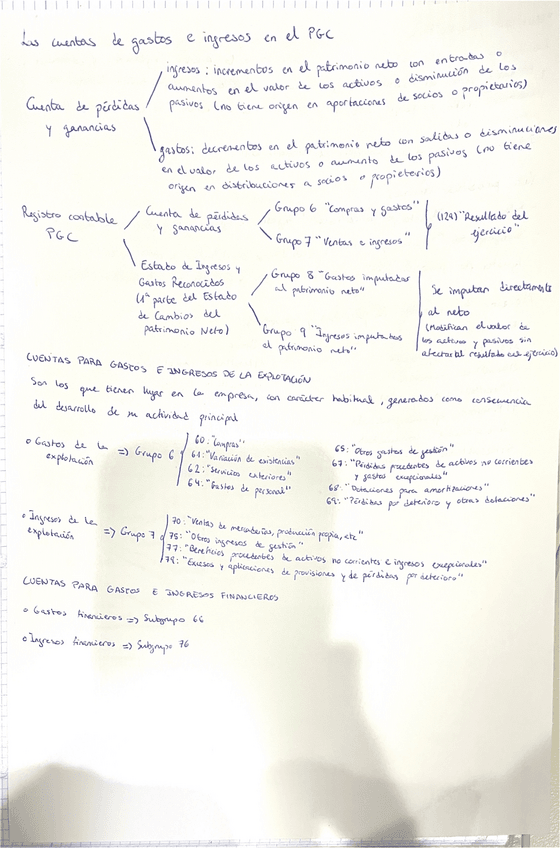 Las cuentas de gastos e ingresos en el PGC
Cuenta de pérdidas
y ganancias
ingresos: incrementos en el patrimonio neto con entradas o
aumentos en el valor de los activos o disminución de los
pasivos (no tiene origen en aportaciones de socios o propietarios)
gastos: decrementos en el patrimonio neto con salidas o disminuciones
en el valor de los activos o aumento de los pasivos (no tiene
origen en distribuciones a socios o propietarios)
Registro contable
PGC
Cuenta de pérdidas
y ganancias
Grupo 6 "Compras y gastos"
Grupo 7 "Ventas e ingresos"
(129) "Resultado del
ejercicio"
Estado de Ingresos y
Gastos Reconocidos
(1ª parte del Estado
de Cambios del
patrimonio Neto)
Grupo 8 "Gastos imputados
al patrimonio neto"
Grupo 9 "Ingresos imputados
al patrimonio neto"
Se imputan directamente
al neto
(Modifican el valor de
los activos y pasivos sin
afectar al resultado del ejercicio)
CUENTAS PARA GASTOS E INGRESOS DE LA EXPLOTACIÓN
Son los que tienen lugar en la empresa, con carácter habitual, generados como consecuencia
del desarrollo de su actividad principal
o Gastos de la
explotación
=> Grupo 6
60: "Compras"
61: "Variación de existencias"
62: "Servicios exteriores"
64: "Gastos de personal"
65: "Otros gastos de gestión"
67: "Pérdidas procedentes de activos no corrientes
y gastos excepcionales"
68: "Dotaciones para amortizaciones"
69: "Pérdidas por deterioro y otras dotaciones"
o Ingresos de la
explotación
=> Grupo 7
70: "Ventas de mercaderías, producción propia, etc"
75: "Otros ingresos de gestión"
77: "Beneficios procedentes de activos no corrientes e ingresos excepcionales"
79: "Excesos y aplicaciones de provisiones y de pérdidas por deterioro"
CUENTAS PARA GASTOS E INGRESOS FINANCIEROS
o Gastos financieros => Subgrupo 66
o Ingresos financieros => Subgrupo 76